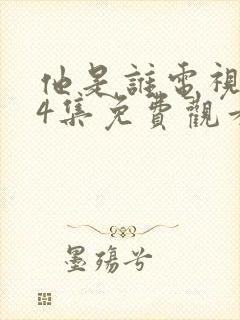 他是誰電視
4集免費觀看
墨殤兮